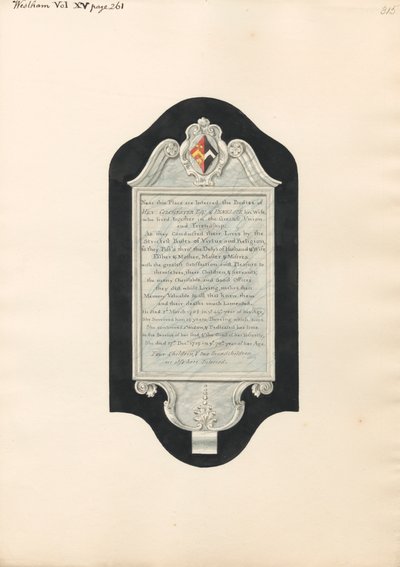 Westham Vol XV page 261
315
Near this Place are Interred the Bodies of
HEN: COLCHESTER Esqr. & PENELOPE his Wife
who lived together in the Utmost Union
and Friendship.
As they Conducted their Lives by the
Strictest Rules of Virtue and Religion,
so they Past thro' the Dutys of Husband & Wife
Father & Mother, Master & Mistress
with the greatest Satisfaction and Pleasure to
themselves, their Children & Servants,
the many Charitable and Good Offices
they did whilst Living, makes their
Memory Valuable to all that knew them
and their deaths much Lamented.
He died 1st March 17 in ye year of his Age,
She Survived him 22 years, During which
She continued a Widow, & Dedicated her time
to the Service of her God, & the Good of her Family,
She died 17th Decr. 17 in ye 70th year of her Age.
Four Children, & two Grandchildren
are also here Interred.